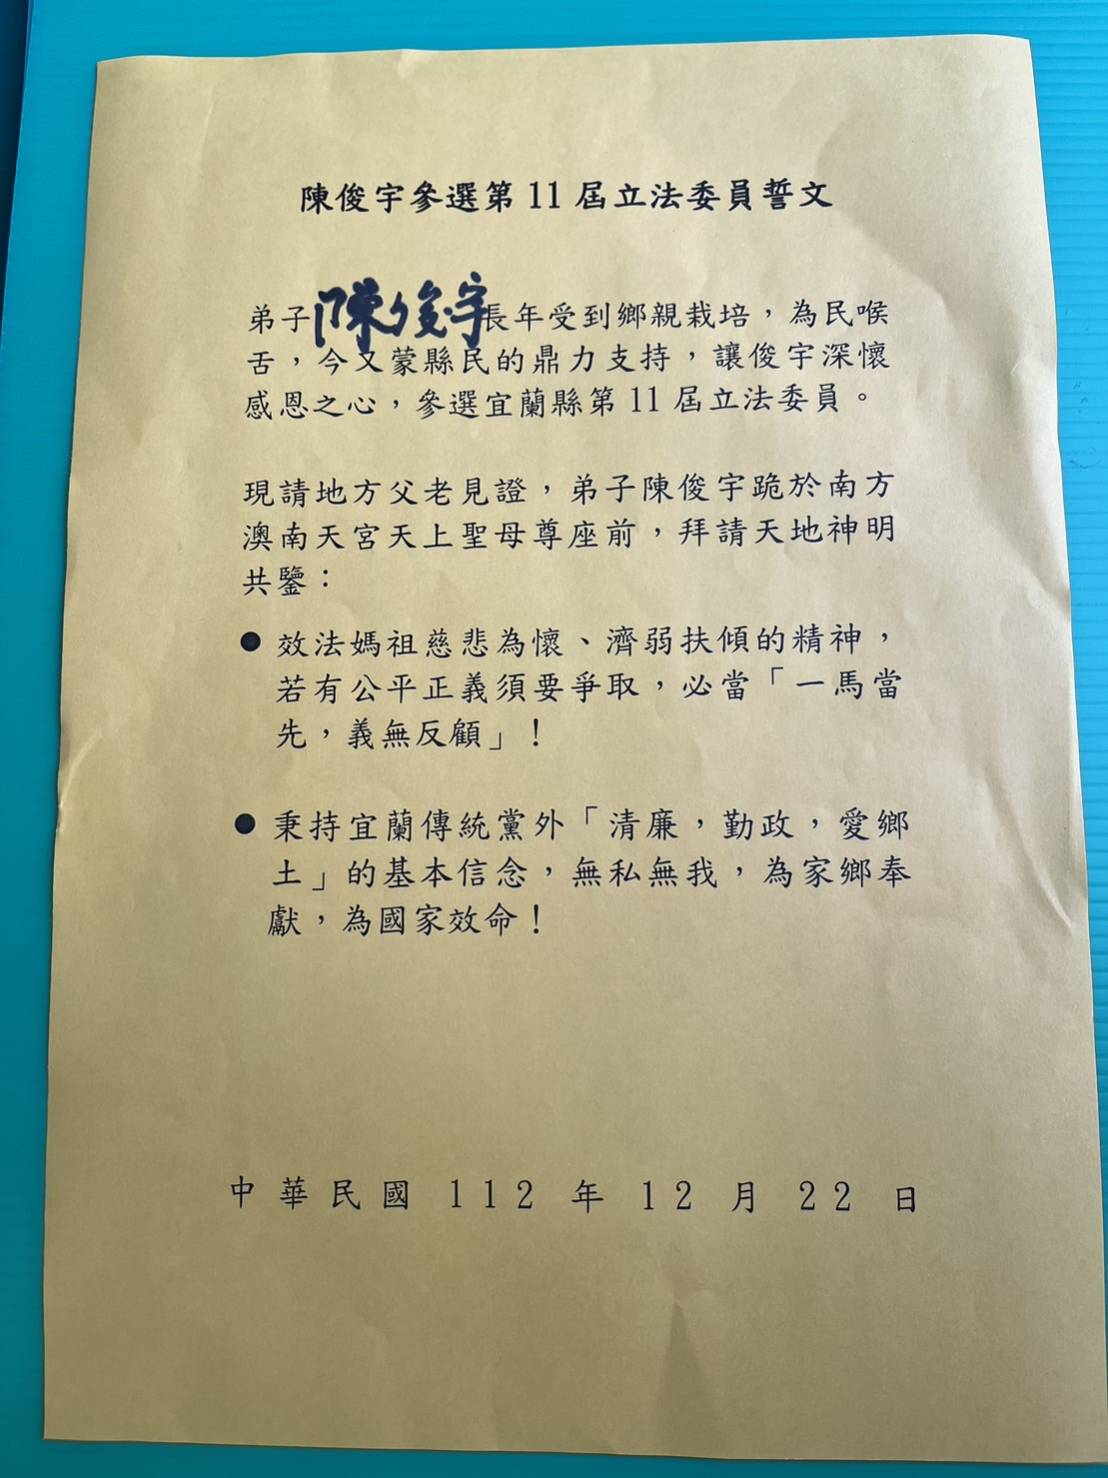 陳俊宇參選第11屆立法委員誓文
弟子陳俊宇長年受到鄉親栽培，為民喉
舌，今又蒙縣民的鼎力支持，讓俊宇深懷
感恩之心，參選宜蘭縣第11屆立法委員。
現請地方父老見證，弟子陳俊宇跪於南方
澳南天宮天上聖母尊座前，拜請天地神明
共鑒：
● 效法媽祖慈悲為懷、濟弱扶傾的精神，
若有公平正義須要爭取，必當「一馬當
先，義無反顧」！
● 秉持宜蘭傳統黨外「清廉，勤政，愛鄉
土」的基本信念，無私無我，為家鄉奉
獻，為國家效命！
中華民國 112 年 12 月 22 日